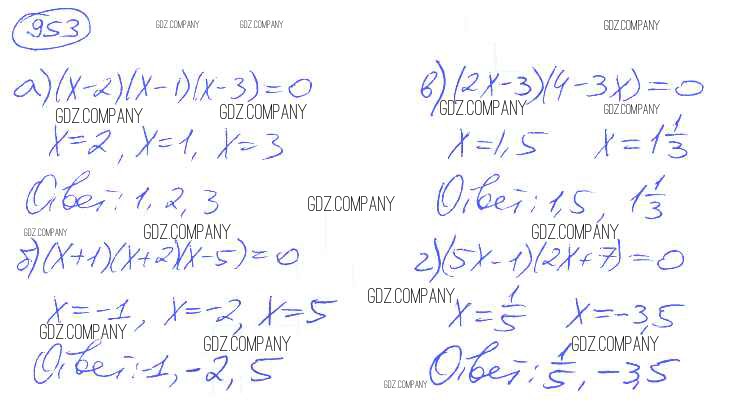 953
GDZ.COMPANY GDZ.COMPANY GDZ.COMPANY
а) (x-2)(x-1)(x-3)=0
GDZ.COMPANY GDZ.COMPANY
x=2, x=1, x=3
Ответ: 1, 2, 3
GDZ.COMPANY
GDZ.COMPANY GDZ.COMPANY
б) (x+1)(x+2)(x-5)=0
x=-1, x=-2, x=5
GDZ.COMPANY GDZ.COMPANY
Ответ: -1, -2, 5
в) (2x-3)(4-3x)=0
GDZ.COMPANY GDZ.COMPANY
x=1,5 x=1 1/3
Ответ: 1,5, 1 1/3
GDZ.COMPANY
г) (5x-1)(2x+7)=0
GDZ.COMPANY
x=1/5 x=-3,5
GDZ.COMPANY
GDZ.COMPANY
Ответ: 1/5, -3,5